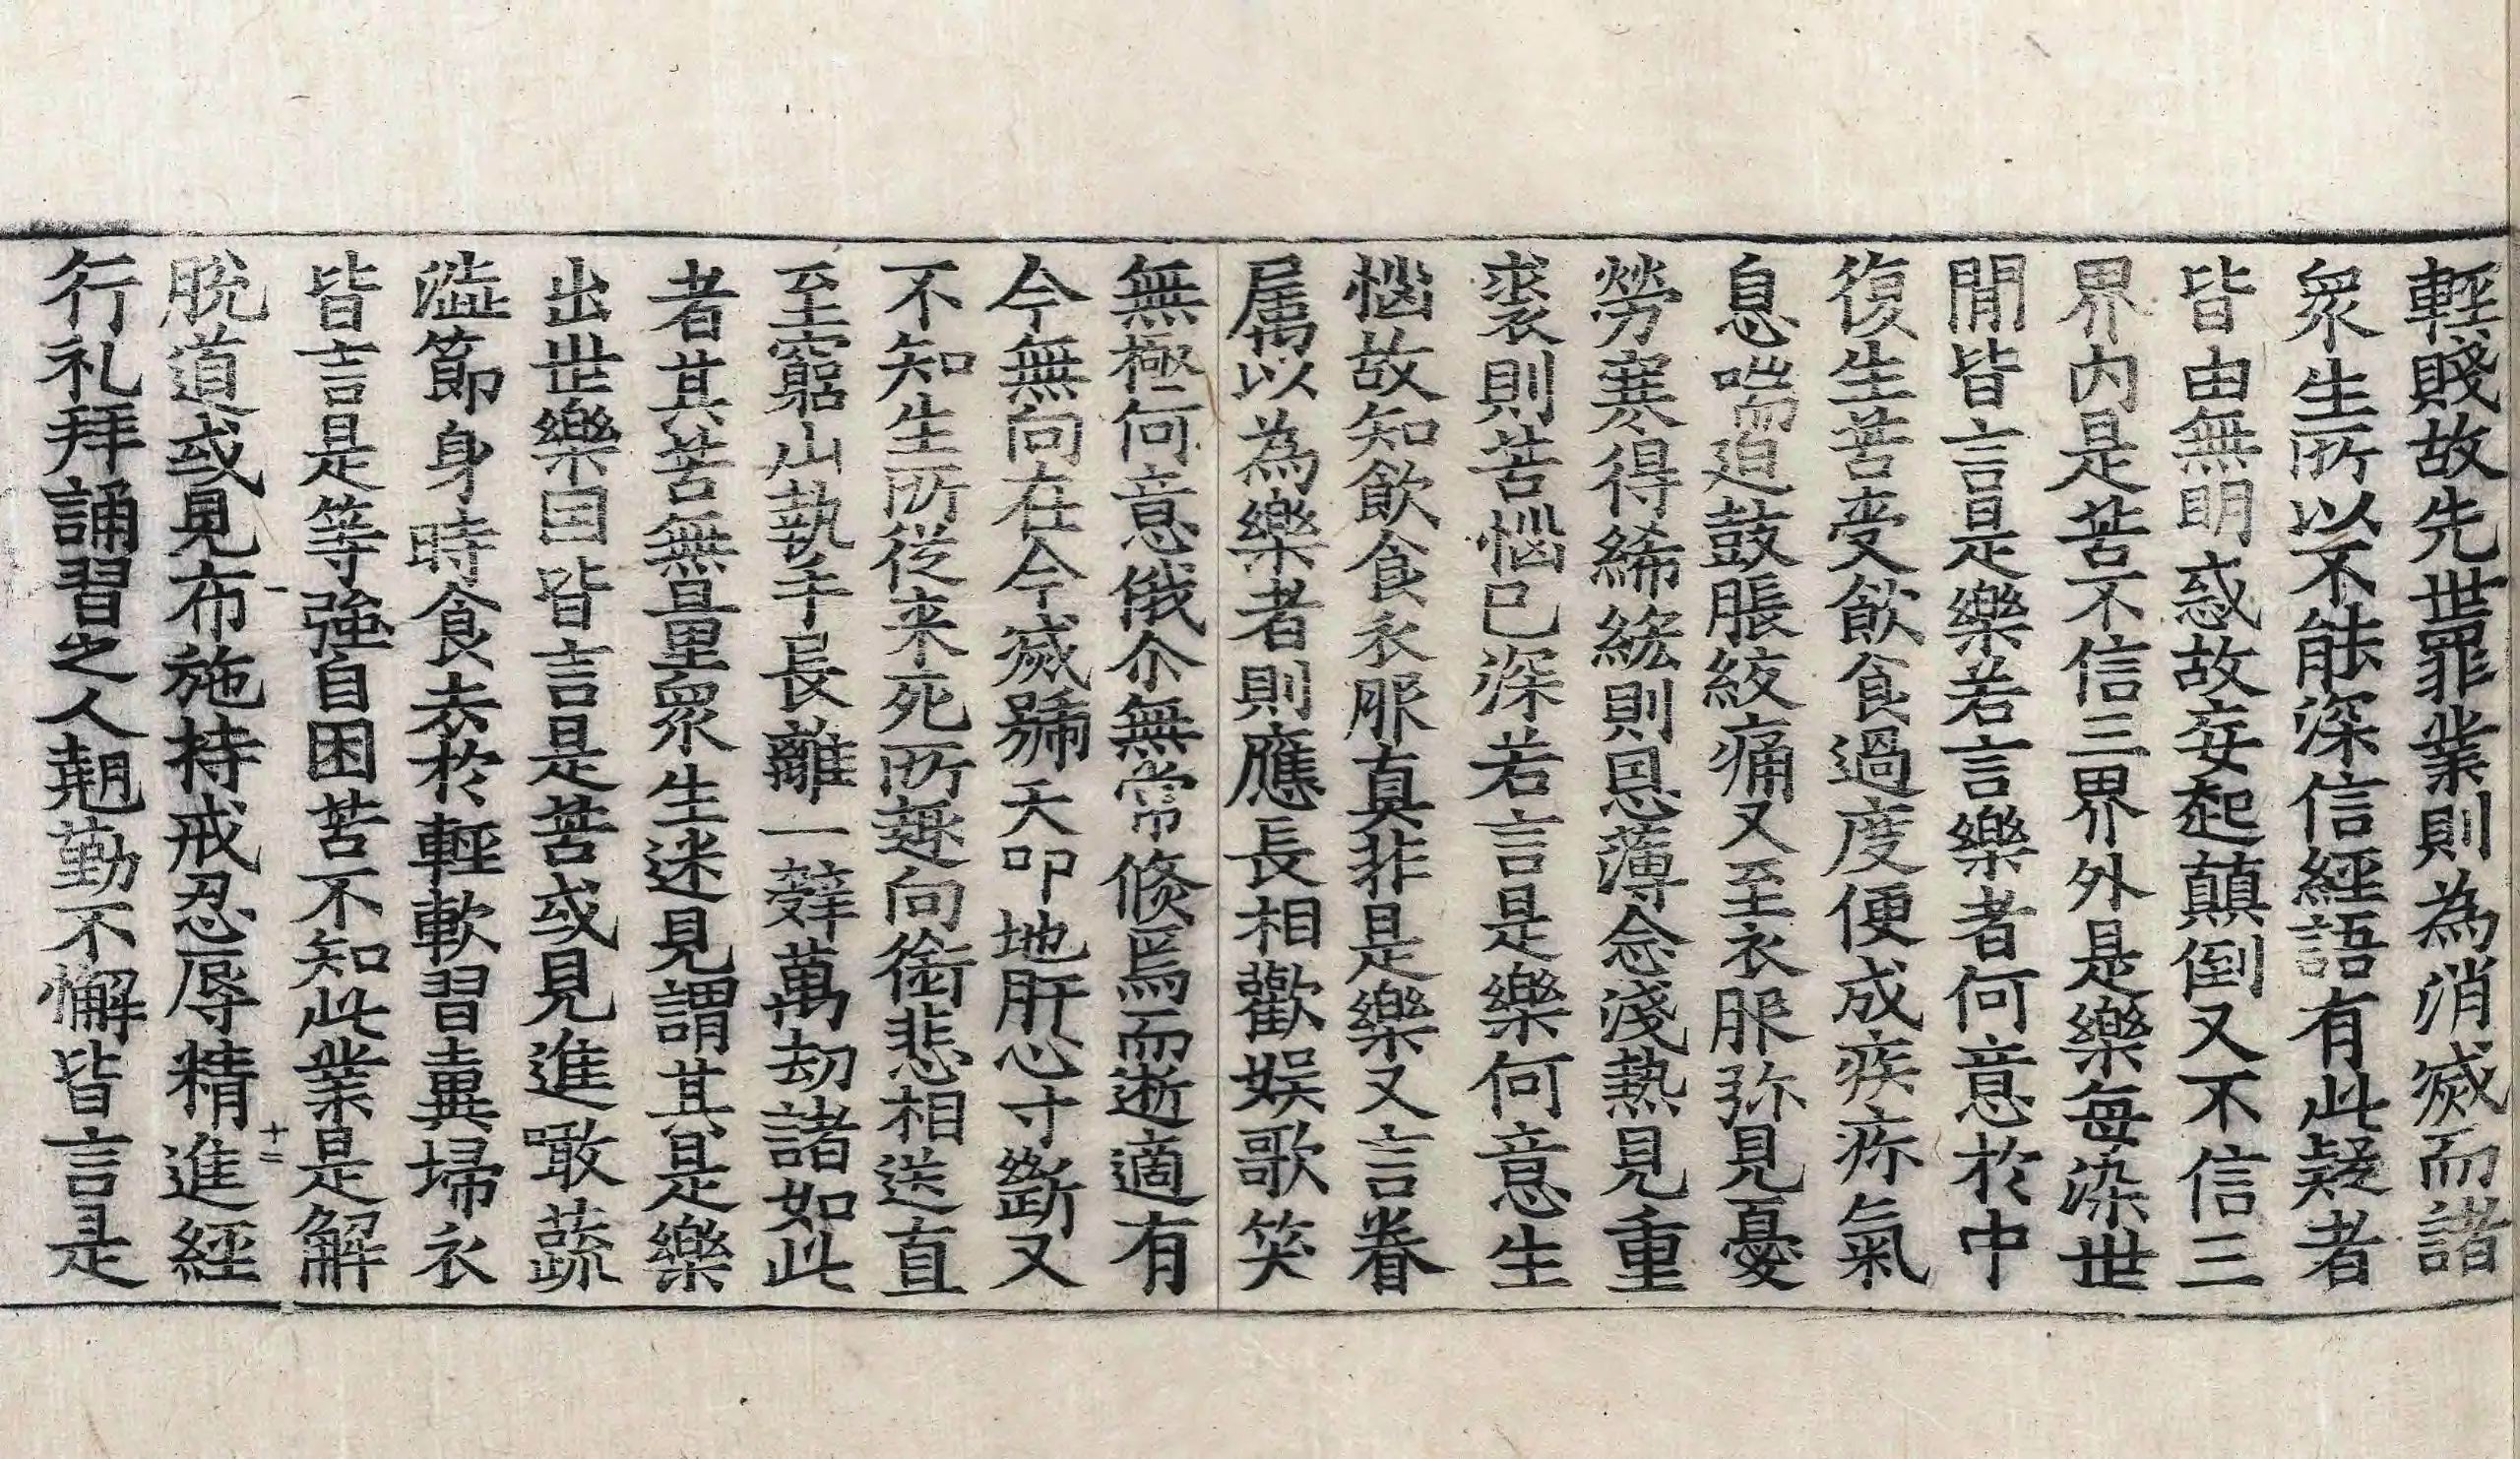 輕賤故先世罪業則為消滅而諸
衆生所以不能深信經語有此疑者
皆由無明惑故妄起顛倒又不信三
界內是苦不信三界外是樂每染世
閒皆言是樂若言樂者何意於中
復生苦受飲食過度便成疾疹氣
息喘迫鼓脹絞痛又至衣服弥見憂
勞寒得絺綌則恩薄念淺熱見重
裘則苦惱已深若言是樂何意生
惱故知飲食衣服真非是樂又言眷
属以為樂者則應長相歡娛歌笑
無極何意俄尒無常倏焉而逝適有
今無向在今滅號天叩地肝心寸斷又
不知生所從来死所趣向銜悲相送直
至窮山執手長離一辤萬劫諸如此
者其苦無量衆生迷見謂其是樂
出世樂因皆言是苦或見進噉蔬
澁節身時食去於輕軟習糞掃衣
皆言是等強自困苦不知此業是解
脫道或見布施持戒忍辱精進經
行礼拜誦習之人翹勤不懈皆言是
十二